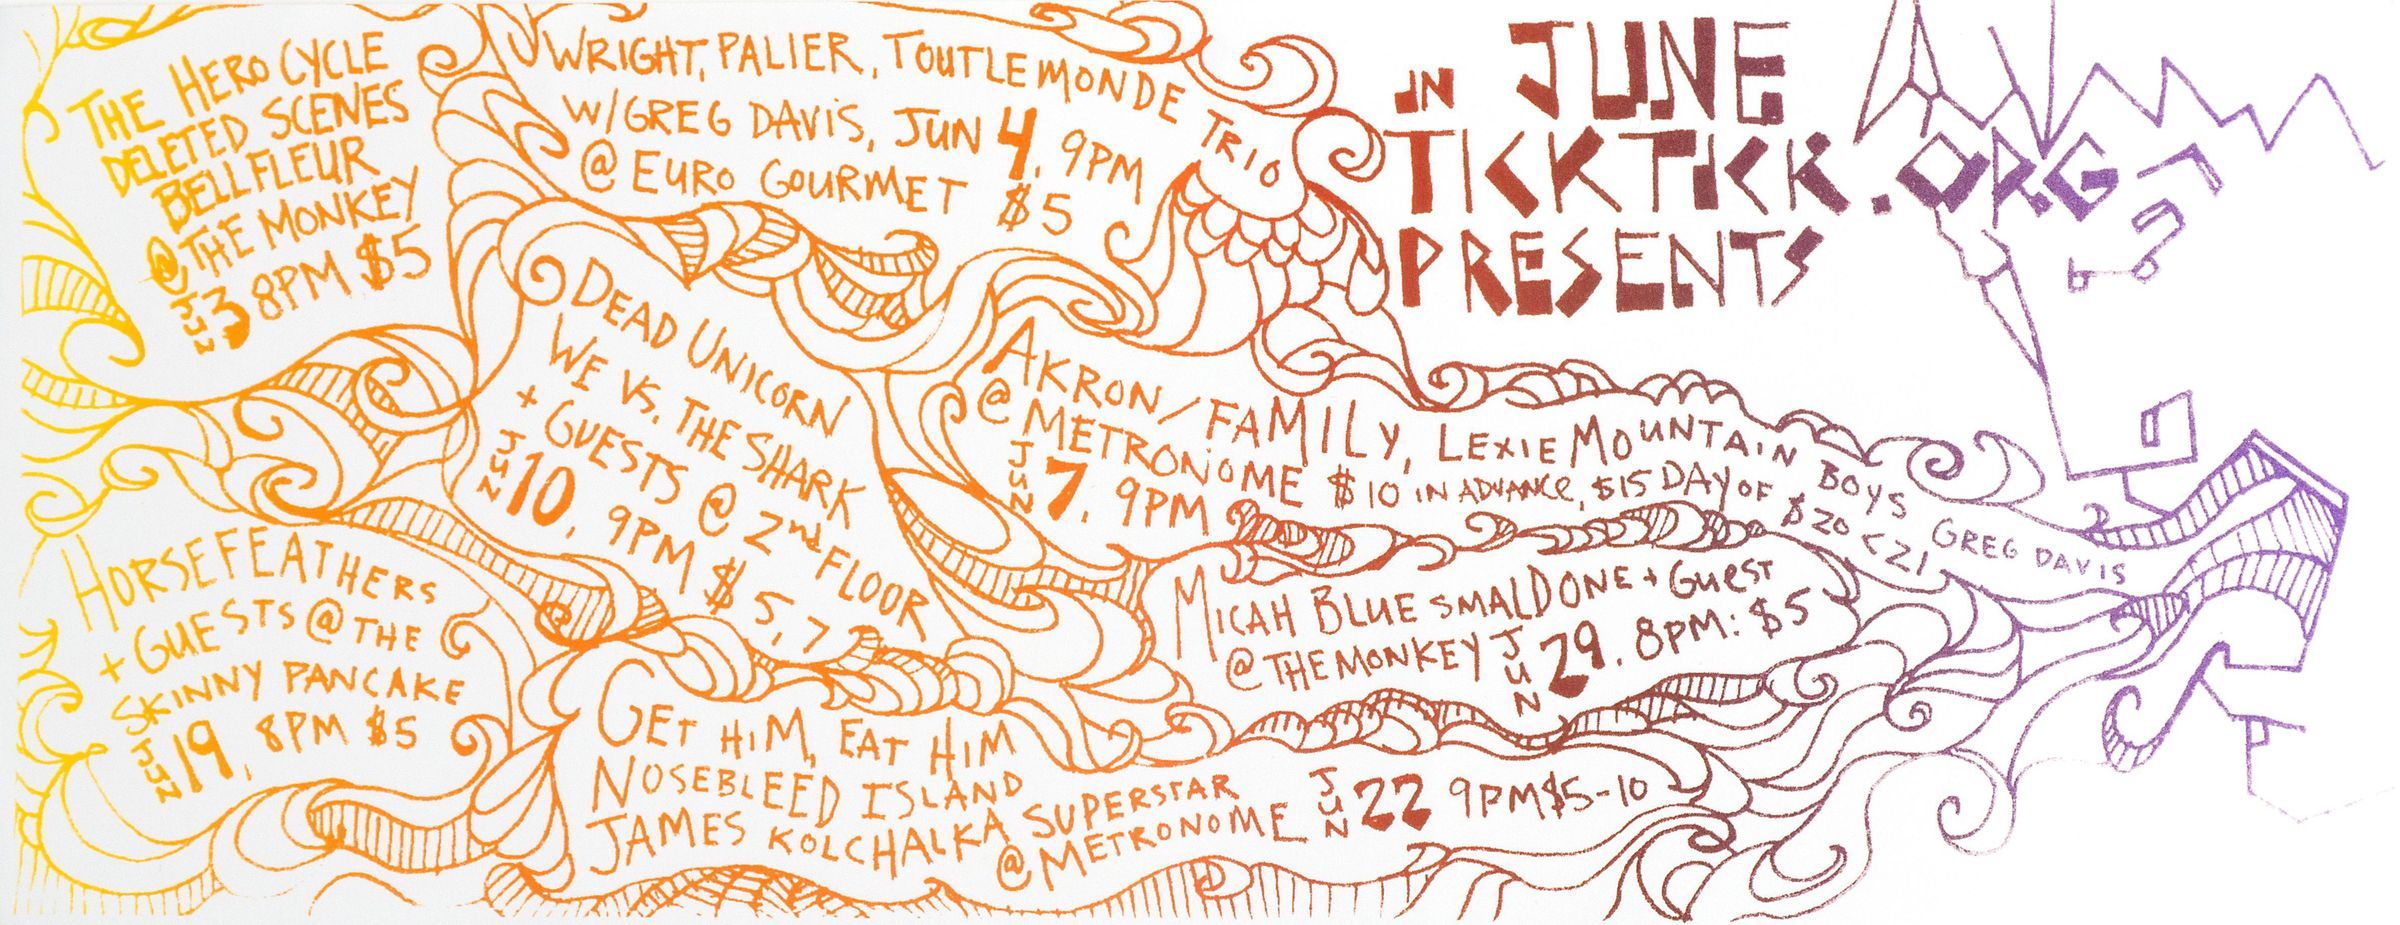 IN JUNE
TICKTICK.ORG
PRESENTS
THE HERO CYCLE
DELETED SCENES
BELLFLEUR
@ THE MONKEY
JUN 3 8PM $5
WRIGHT, PALIER, TOUTLEMONDE TRIO
W/GREG DAVIS, JUN 4, 9PM
@ EURO GOURMET $5
DEAD UNICORN
WE VS. THE SHARK
+ GUESTS @ 2nd FLOOR
JUN 10, 9PM $5,7
AKRON/FAMILY, LEXIE MOUNTAIN BOYS GREG DAVIS
@ METRONOME $10 IN ADVANCE, $15 DAY OF $20 <21
JUN 7, 9PM
HORSEFEATHERS
+ GUESTS @ THE
SKINNY PANCAKE
JUN 19, 8PM $5
MICAH BLUE SMALDONE + GUEST
@ THE MONKEY JUN 29. 8PM: $5
GET HIM, EAT HIM
NOSEBLEED ISLAND
JAMES KOLCHALKA SUPERSTAR
@ METRONOME JUN 22 9PM $5-10